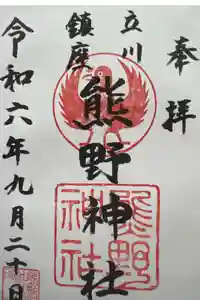 奉拝
立川
鎮座
熊野神社
熊野
神社
令和六年九月二十日